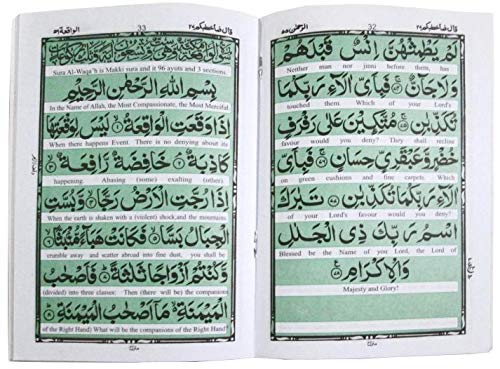 قال فما خطبكم ٢٧ 32 الرحمن ٥٥
لَمْ يَطْمِثْهُنَّ اِنْسٌ قَبْلَهُمْ
Neither man nor jinni before them, has
وَلَا جَآنٌّ ۚ فَبِاَيِّ اٰلَآءِ رَبِّكُمَا
touched them. Which of your Lord's
تُكَذِّبٰنِ ۞ مُتَّكِـِٕيْنَ عَلٰى رَفْرَفٍ
favour would you deny? They shall recline
خُضْرٍ وَّعَبْقَرِيٍّ حِسَانٍ ۚ فَبِاَيِّ
on green cushions and fine carpets. Which
اٰلَآءِ رَبِّكُمَا تُكَذِّبٰنِ ۞ تَبٰرَكَ
of your Lord's favour would you deny?
اسْمُ رَبِّكَ ذِي الْجَلٰلِ
Blessed be the Name of you Lord, the Lord of
وَالْاِكْرَامِ ۞
Majesty and Glory!
قال فما خطبكم ٢٧ 33 الواقعة ٥٦
سورة الواقعة مكية وهي
Sura Al-Waqa'h is Makki sura and it 96 ayuts and 3 sections.
بِسْمِ اللّٰهِ الرَّحْمٰنِ الرَّحِيْمِ
In the Name of Allah, the Most Compassionate, the Most Merciful
اِذَا وَقَعَتِ الْوَاقِعَةُ ۞ لَيْسَ لِوَقْعَتِهَا
When there happens Event. There is no denying about its
كَاذِبَةٌ ۞ خَافِضَةٌ رَّافِعَةٌ ۞
happening. Abasing (some) exalting (other).
اِذَا رُجَّتِ الْاَرْضُ رَجًّا ۞ وَّبُسَّتِ
When the earth is shaken with a (violent) shock,and the mountains
الْجِبَالُ بَسًّا ۞ فَكَانَتْ هَبَآءً مُّنْۢبَثًّا ۞
crumble away and scatter abroad into fine dust, you shall be
وَّكُنْتُمْ اَزْوَاجًا ثَلٰثَةً ۞ فَاَصْحٰبُ
(divided) into three classes: Then (there will be) the companions
الْمَيْمَنَةِ ۙ مَآ اَصْحٰبُ الْمَيْمَنَةِ ۞
of the Right Hand) What will be the companions of the Right Hand?